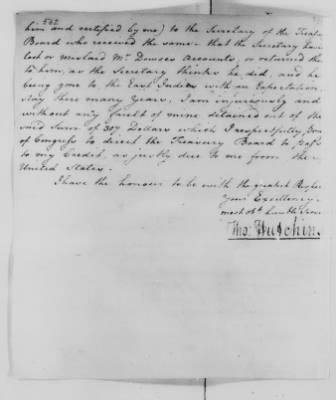 562
him and certified by me) to the Secretary of the Treasu
Board who received the same. that the Secretary have
lost or mislaid Mr. Dowses Accounts, or returned the
to him, as the Secretary thinks he did, and he
being gone to the East Indies with an Expectation
stay there many Years, I am injuriously and
without any guilt of mine detained out of the
said Sum of 307 Dollars which I respectfully
of Congress to direct the Treasury Board to Pass
to my Credit, as justly due to me from the
United States.
I have the honour to be with the greatest Respe
Your Excellency
most obt. humble Serv
Tho: Hutchins